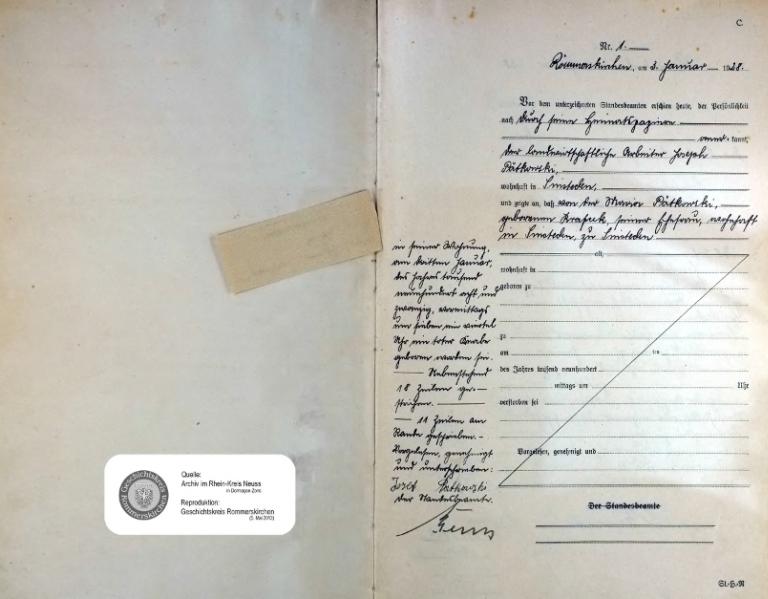 C.
Nr. 1.
Rommerskirchen, am 3. Januar 1928.
Vor dem unterzeichneten Standesbeamten erschien heute, der Persönlichkeit
nach durch seine Heimatspapiere
anerkannt,
der landwirtschaftliche Arbeiter Joseph
Pätkowski,
wohnhaft in Sinsteden,
und zeigte an, daß von der Maria Pätkowski,
geborenen, seiner Ehefrau, wohnhaft
in Sinsteden, zu Sinsteden
alt,
wohnhaft in
geboren zu
zu
am ten
des Jahres tausend neunhundert
mittags um Uhr
verstorben sei
Vorgelesen, genehmigt und
Der Standesbeamte
St.-H.-R
in seiner Wohnung,
am dritten Januar,
des Jahres tausend
neunhundert acht und
zwanzig, vormittags
um sieben ein viertel
Uhr ein toter Knabe
geboren worden sei.
Nebenstehend
18 Zeilen ge-
strichen.
11 Zeilen am
Rande geschrieben.
Vorgelesen, genehmigt
und unterschrieben:
Der Standesbeamte.
Quelle:
Archiv im Rhein-Kreis Neuss
in Dormagen-Zons
Reproduktion:
Geschichtskreis Rommerskirchen
(5. Mai 2012)
Geschichtskreis
Rommerskirchen